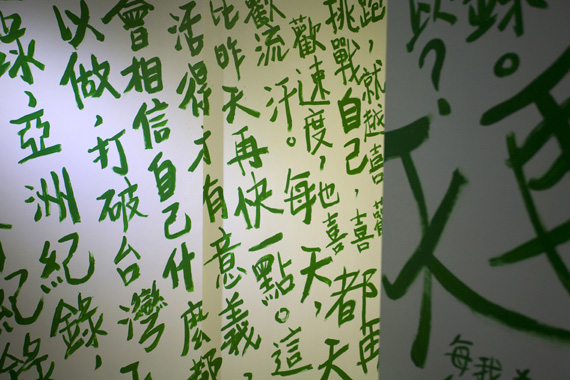 錄。
以?
再
每我
跑,就越喜歡
挑戰自己,喜
再
歡速度,也喜
都
歡流汗。每天,
天
比昨天再快一點。這
活得才有意義
會相信自己什麼都
以做,打破台灣
球,亞洲紀錄,
紀錄